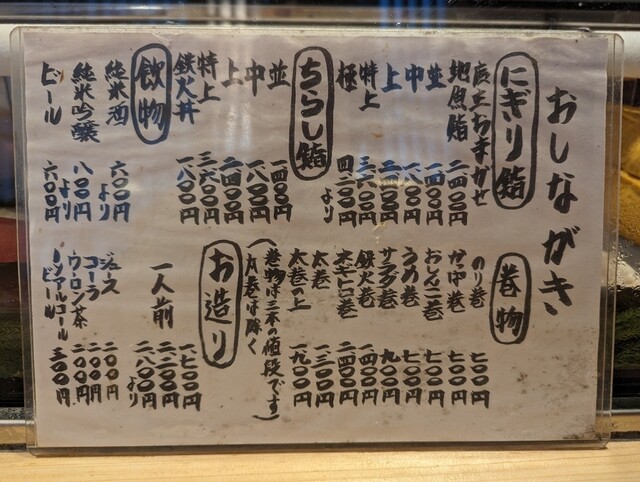 おしながき
にぎり鮨
店主おまかせ
地魚鮨 二四〇〇円
並 一四〇〇円
中 一八〇〇円
上 二四〇〇円
特上 三六〇〇円
極 四二〇〇円より
ちらし鮨
並 一四〇〇円
中 一八〇〇円
上 二四〇〇円
特上 三六〇〇円
鉄火丼 一八〇〇円
飲物
純米酒 六〇〇円より
純米吟醸 八〇〇円より
ビール 六〇〇円
巻物
のり巻 七〇〇円
かっぱ巻 七〇〇円
おしんこ巻 七〇〇円
うめ巻 七〇〇円
サラダ巻 九〇〇円
鉄火巻 一四〇〇円
ネギトロ巻 二四〇〇円
太巻 一三〇〇円
太巻の上 一九〇〇円
(巻物は三本の値段です)
(太巻は除く
お造り
一人前 一七〇〇円
二二〇〇円
二八〇〇円より
ジュース 二〇〇円
コーラ 二〇〇円
ウーロン茶 二〇〇円
ノンアルコールビール 三〇〇円